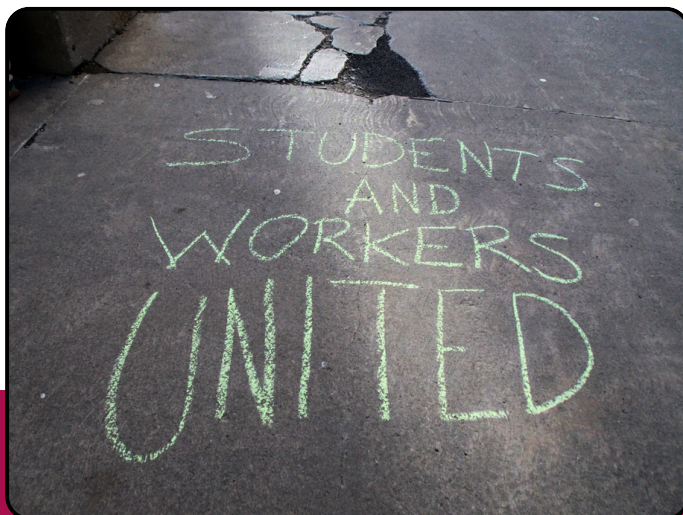 STUDENTS
AND
WORKERS
UNITED